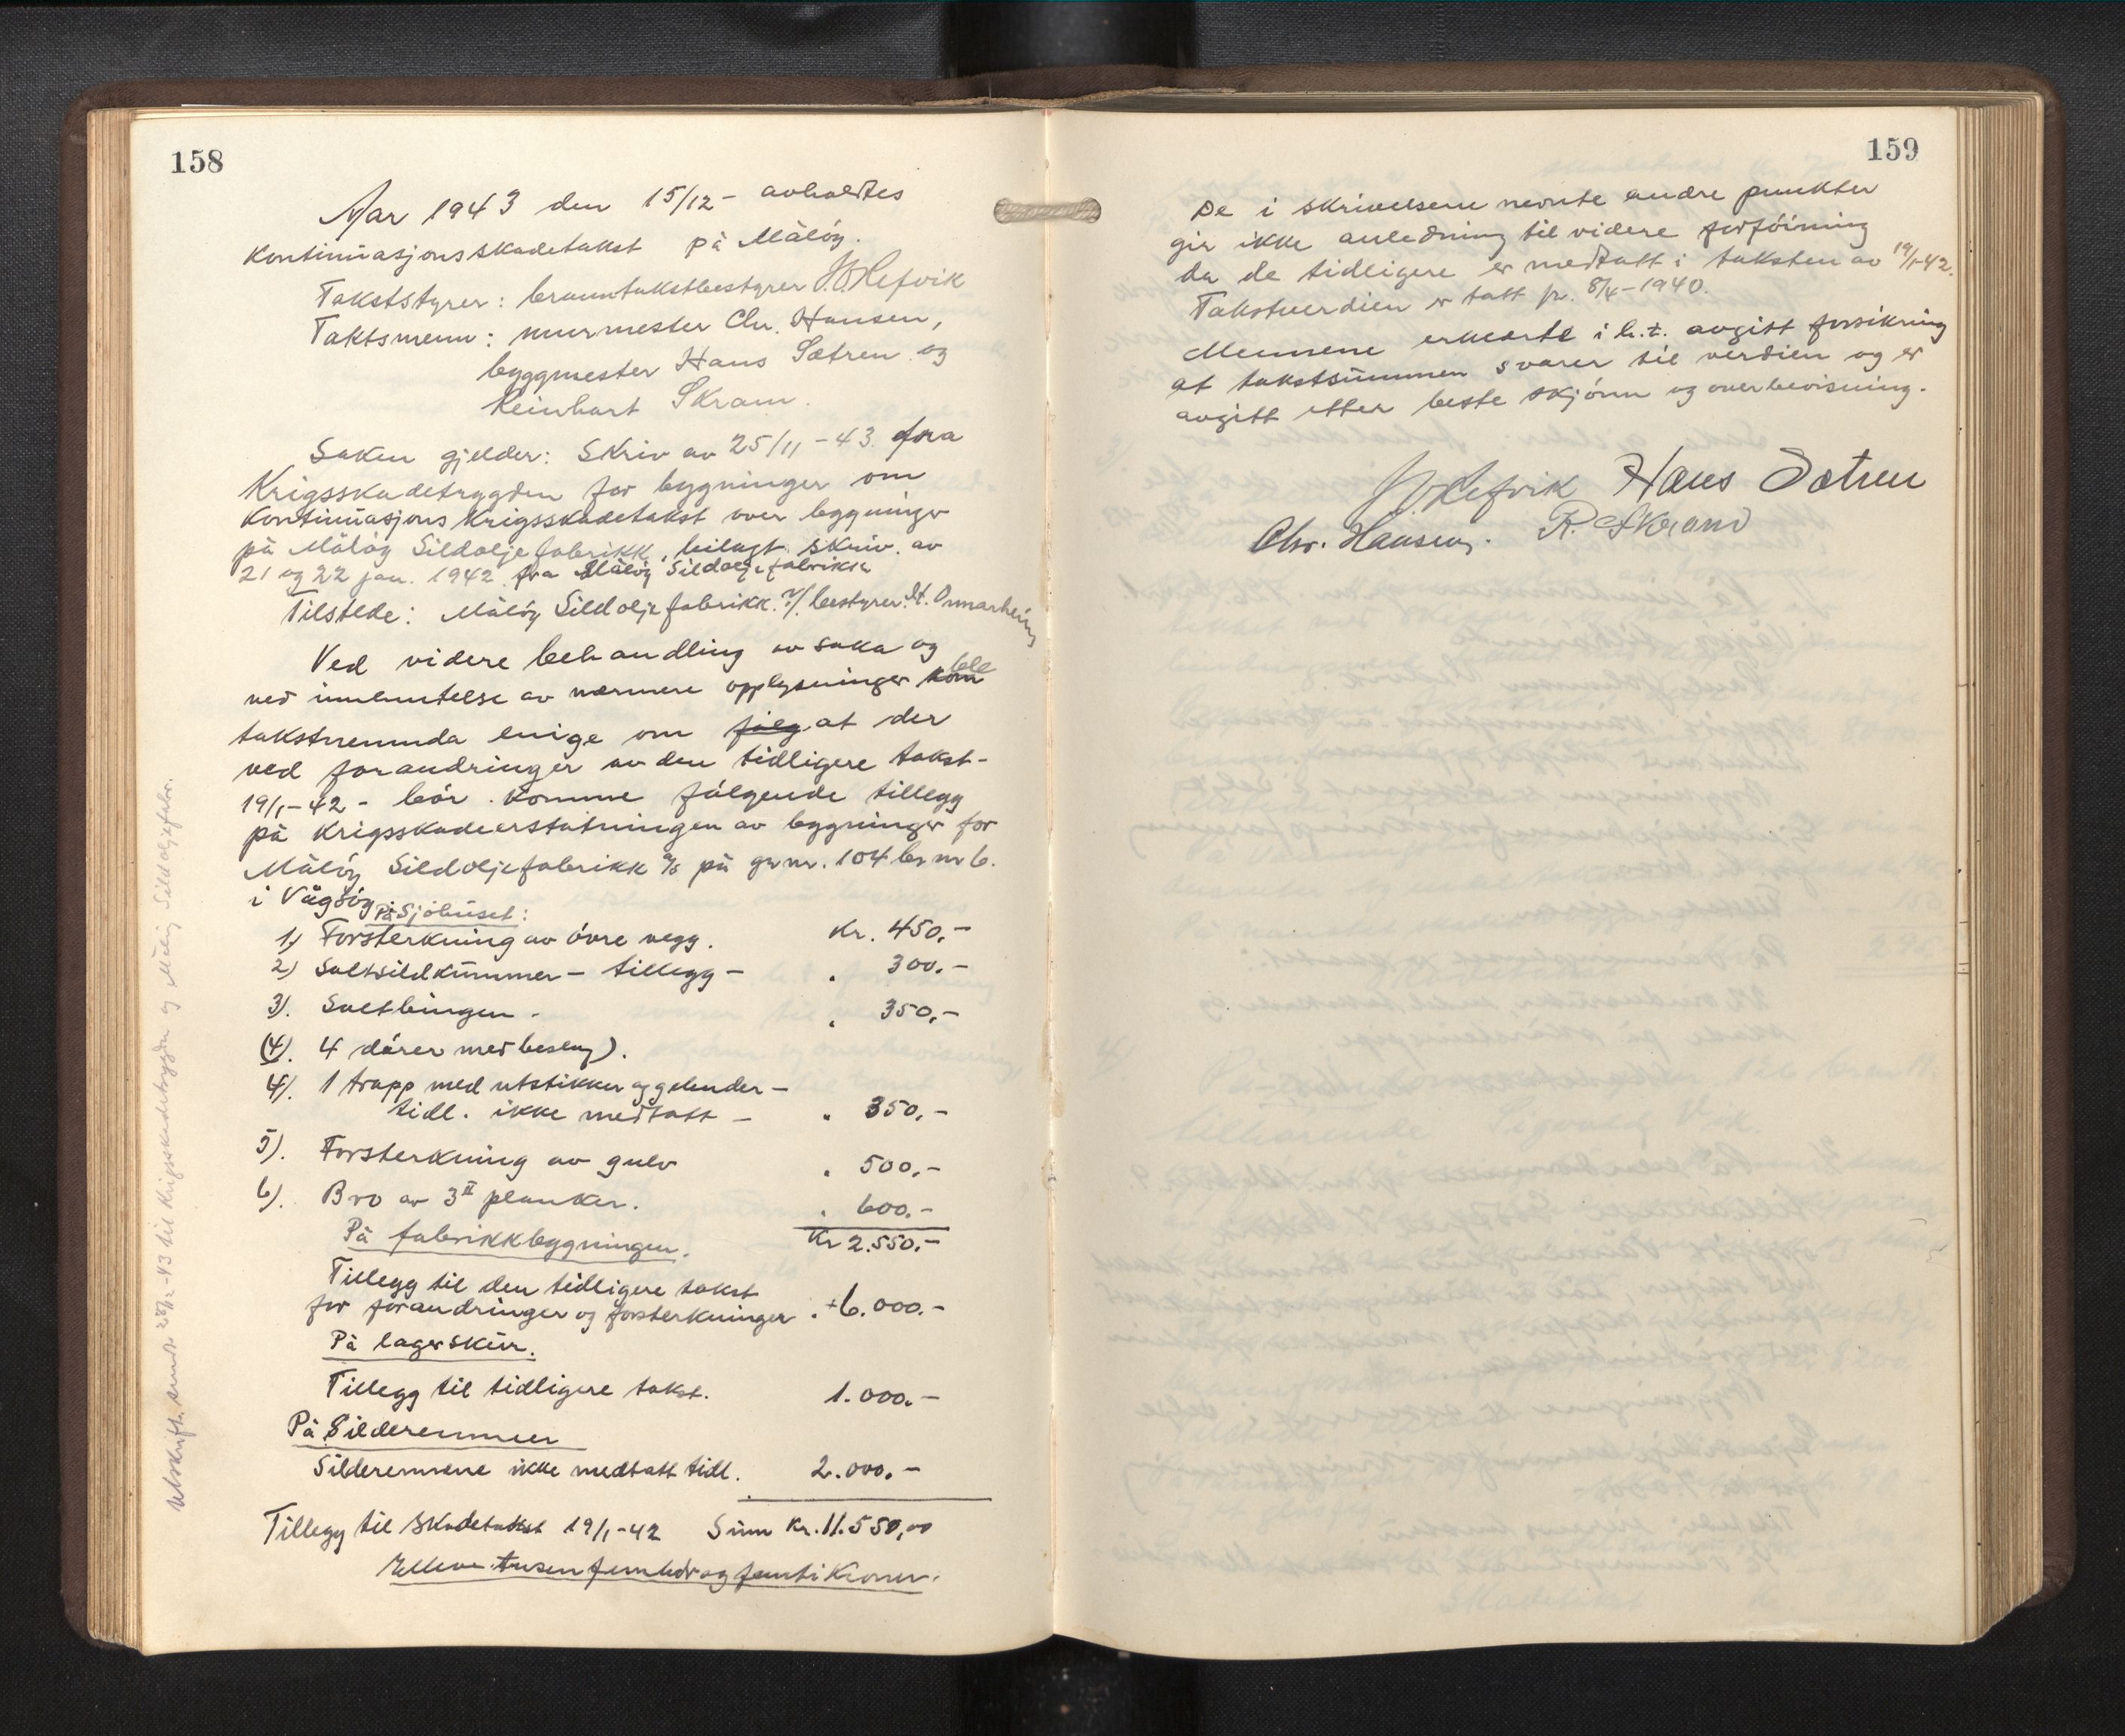 158
Aar 1943 den 15/12 - avholdtes
Kontinuasjonsskadetakst på Måløy.
Takststyrer: branntakstbestyrer Refvik
Taktsmenn: murmester Chr. Hansen,
byggmester Hans Sætren og
Reinhart Skram.
Saken gjelder: Skriv av 25/11 - 43. fra
Krigsskadetrygden for bygninger om
Kontinuasjons Krigsskadetakst over bygninger
på Måløy Sildoljefabrikk, bilagt skriv. av
21 og 22 jan. 1942 fra Måløy Sildoljefabrikk
Tilstede: Måløy Sildoljefabrikk. v/ bestyrer
Ved videre behandling av saka og
ved innhentelse av nærmere opplysninger kom ble
takstnemnda enige om følg at der
ved forandringer av den tidligere takst-
19/1-42 - bör komme fölgende tillegg
på Krigsskadeerstatningen av bygninger for
Måløy Sildoljefabrikk a/s på gr.nr. 104 br nr 6.
i Vågsøy
På Sjöhuset:
1) Forsterkning av övre vegg. Kr. 450,-
2) Saltsildkummer - tillegg - " 300.-
3). Saltbingen - " 350,-
(4). 4 dörer med beslag).
4). 1 trapp med utstikker og gelender -
tidl. ikke medtatt - " 350,-
5). Forsterkning av gulv " 500,-
6). Bro av 3" planker. " 600.-
Kr 2.550.-
På fabrikkbygningen.
Tillegg til den tidligere takst
for forandringer og forsterkninger . +6.000.-
På lagerskur.
Tillegg til tidligere takst. 1.000.-
På Silderenner
Silderennene ikke medtatt tidl. 2.000.-
Tillegg til Skadetakst 19/1-42 Sum Kr. 11.550,00
Elleve tusen femhdr og femti Kroner.
Utskrift sendt 28/12-43 til Krigsskadetrygden og Måløy Sildoljefabr.
159
De i skrivelsene nevnte andre punkter
gir ikke anledning til videre forföining
da de tidligere er medtatt i taksten av 19/1-42.
Takstverdien er tatt pr. 8/4-1940.
Mennene erklærte i h.t. avgitt forsikring
at takstsummen svarer til verdien og er
avgitt etter beste skjönn og overbevisning.
Refvik Hans Sætren
Chr. Hansen. R. Skram